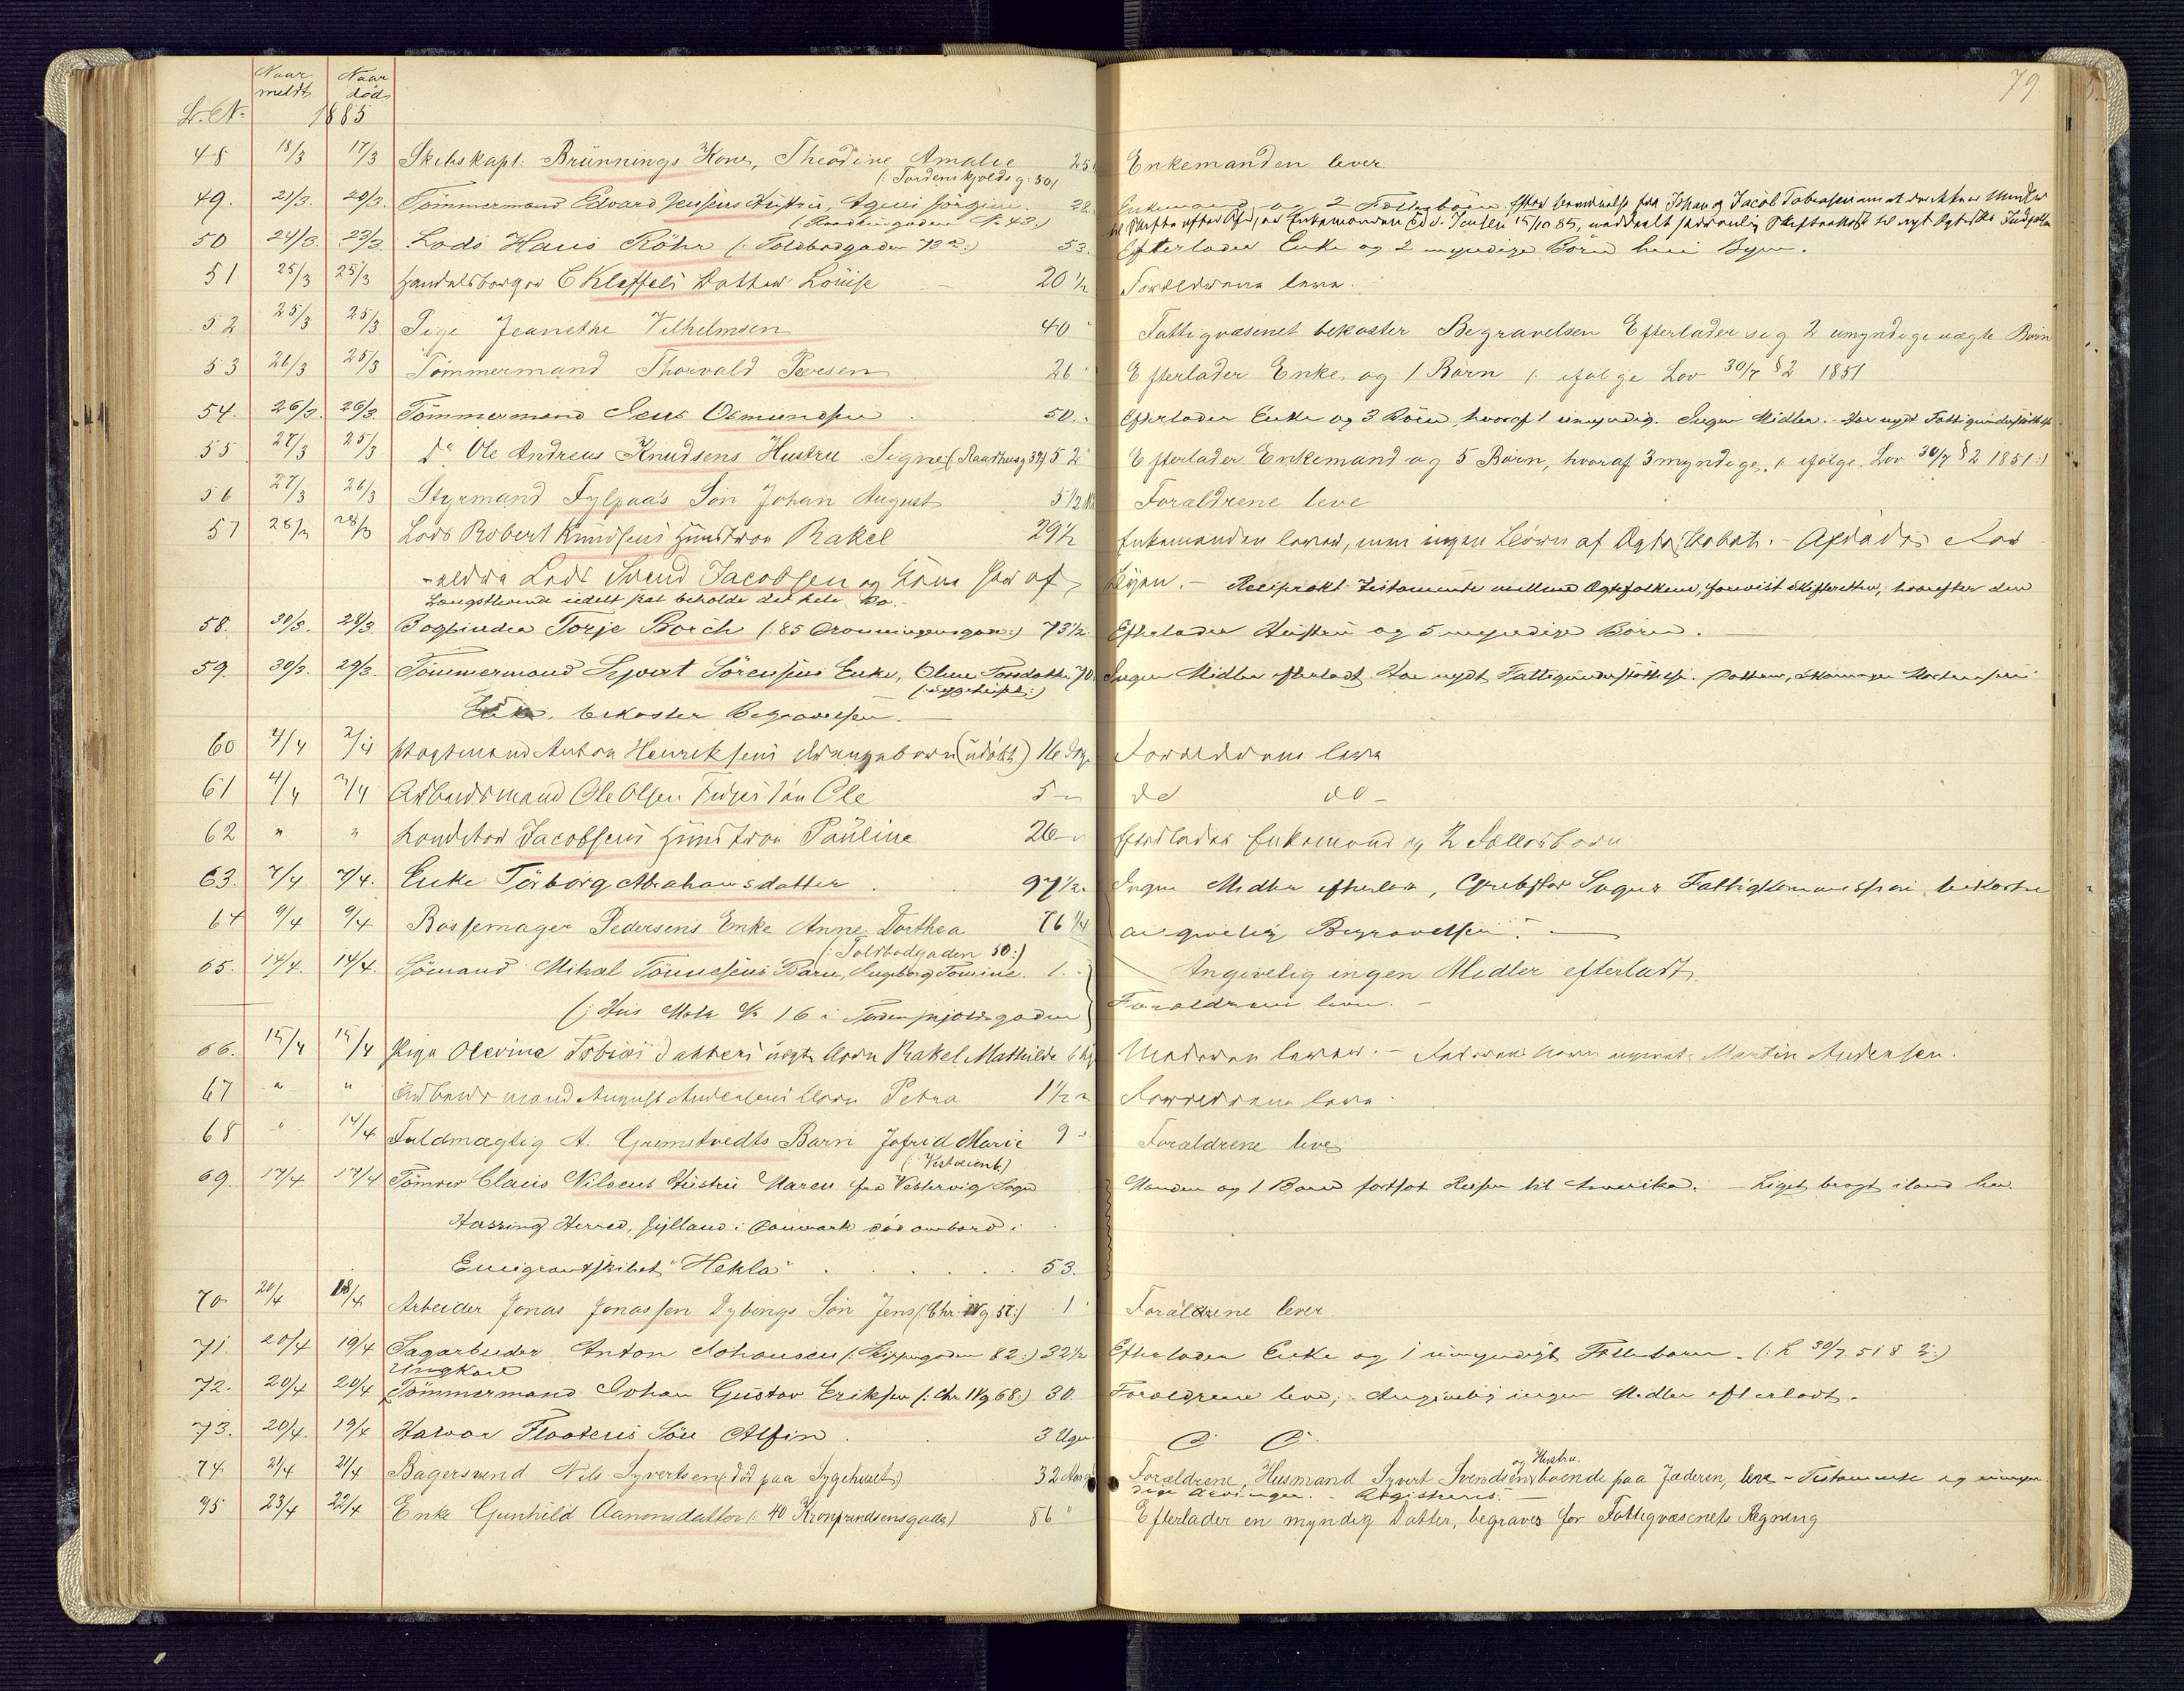 Naar meldt Naar død
L. N. 1885
79
48 18/3 17/3 Skibskapt: Brünnings Kone, Theodine Amalie 25 Enkemanden lever
(: Tordenskjolds g. 50)
49. 21/3. 20/3. Tömmermand Edvard Jensens Hustru, Agnes Jörgine 28. Enkemand og 2 Fællesbörn
(Raadhusgaden No 43:)
50 24/3 23/3 Lods Hans Röhr (: Toldbodgaden 73 a:) 53. Efterlader Enke og 2 myndige Börn her i Byen.
51 25/3 25/3 Handelsborger C Kleffels Datter Louise 20 1/2 Forældrene leve.
52 25/3 25/3 Pige Jeanethe Vilhelmsen 40 Fattigvæsenet bekoster Begravelsen Efterlader sig 2 umyndige uægte Børn
53 26/3 25/3 Tömmermand Thorvald Peersen 26 Efterlader Enke og 1 Barn (: ifølge Lov 30/7 § 2 1851
54. 26/3. 26/3. Tömmermand Jens Osmundsen 50. Efterlader Enke og 3 Börn, hvoraf 1 umyndig. Ingen Midler. Har nydt Fattigunderstöttelse
55 27/3 25/3 do Ole Andreas Knudsens Hustru Signe (Raadhusg 39) 52 Efterlader Enkemand og 5 Børn, hvoraf 3 myndige. (: ifølge Lov 30/7 § 2 1851:)
56 27/3 26/3 Styrmand Fylpaas Søn Johan August 5 1/2 Forældrene leve
57 28/3 28/3 Lods Robert Knudsens Hustru Rakel 29 1/2 Enkemanden lever, men ingen Börn af Ægteskabet. - Afdødes For
-ældre Lods Svend Jacobsen og Kone her af Byen. - Reciprokt Testamente mellem Ægtefolkene, forevist Skifteretten, hvorefter den
Længstlevende udelt skal beholde det hele Bo.-
58. 30/3. 28/3. Bogbinder Torje Borch (: 85 Dronningensgade:) 73 1/2. Efterlader Hustru og 5 myndige Börn.
59. 30/3. 29/3. Tömmermand Syvert Sörensens Enke, Olene Torsdatter 70. Ingen Midler efterladt. Har nydt Fattigunderstöttelse.
(: Sygehuset:)
bekoster Begravelsen.
60 4/4 2/4 Anton Henriksens Drengebarn (udöbt) 16 Dg. Forældrene leve
61 4/4 3/4 Arbeidsmand Ole Olsen Søn Ole 5 do do -
62 " " Jacobsens Hustru Pauline 26 Efterlader Enkemand og 2 Fællesbörn
63. 7/4 7/4. Enke Torborg Abrahamsdatter 97 1/2. Ingen Midler efterladt, Sogns Fattigkommission bekoster
64 9/4 9/4 Bøssemager Pedersens Enke Anne Dorthea 76 1/4 angivelig Begravelsen.
(: Toldbodgaden 50:)
65. 14/4. 14/4. Sömand Mikal Tönnesens Barn, Ingeborg Tomine. 1. Angivelig ingen Midler efterladt.
(: Hus Matr No 16 i Tordenskjoldsgaden Forældrene leve. -
66. 15/4 15/4 Pige Olevine Tobiasdatters uægte Barn Rakel Mathilde Moderen lever. - Faderens Navn Martin Andersen.
67 " " Arbeidsmand August Andersens Barn Petra 1 1/2 Forældrene leve
68 " 14/4 Fuldmægtig A. Grimstvedts Barn Jofrid Marie 9 Forældrene leve
(: Vesterveien:)
69. 17/4 17/4 Tömrer Claus Nilsens Hustru Maren fra Vestervig Sogn Manden og 1 Barn fortsat Reisen til Amerika. - Liget bragt iland her
Hassing Herred, Jylland i Danmark död ombord i
Emigrantskibet "Hekla" 53.
70 20/4 18/4 Arbeider Jonas Jonassen Dybings Søn Jens 1 Forældrene lever
71. 20/4 19/4 Sagarbeider Anton Johansen (: Skippergaden 82:) 32 1/2 Efterlader Enke og 1 umyndigt Fællesbarn. (: L 30/7. 51 § 2:)
Ungkarl
72. 20/4 20/4 Tömmermand Johan Gustav Eriksen (: Chr IVg 68:) 30. Forældrene leve; Angivelig ingen Midler efterladt.
73. 20/4. 19/4 Halvor Flaatens Sön Alfin 3 Uger
74 21/4 21/4 Bagersvend Nils Syvertsen (: død paa Sygehuset:) 32 Forældrene, Husmand Syvert Svendsen og Hustru boende paa Jæderen, leve - Testamente og
Registreres. -
75 23/4 22/4 Enke Gunhild Aanonsdatter (: 40 Kronprindsensgade) 86 " Efterlader en myndig Datter, begraves for Fattigvæsenets Regning